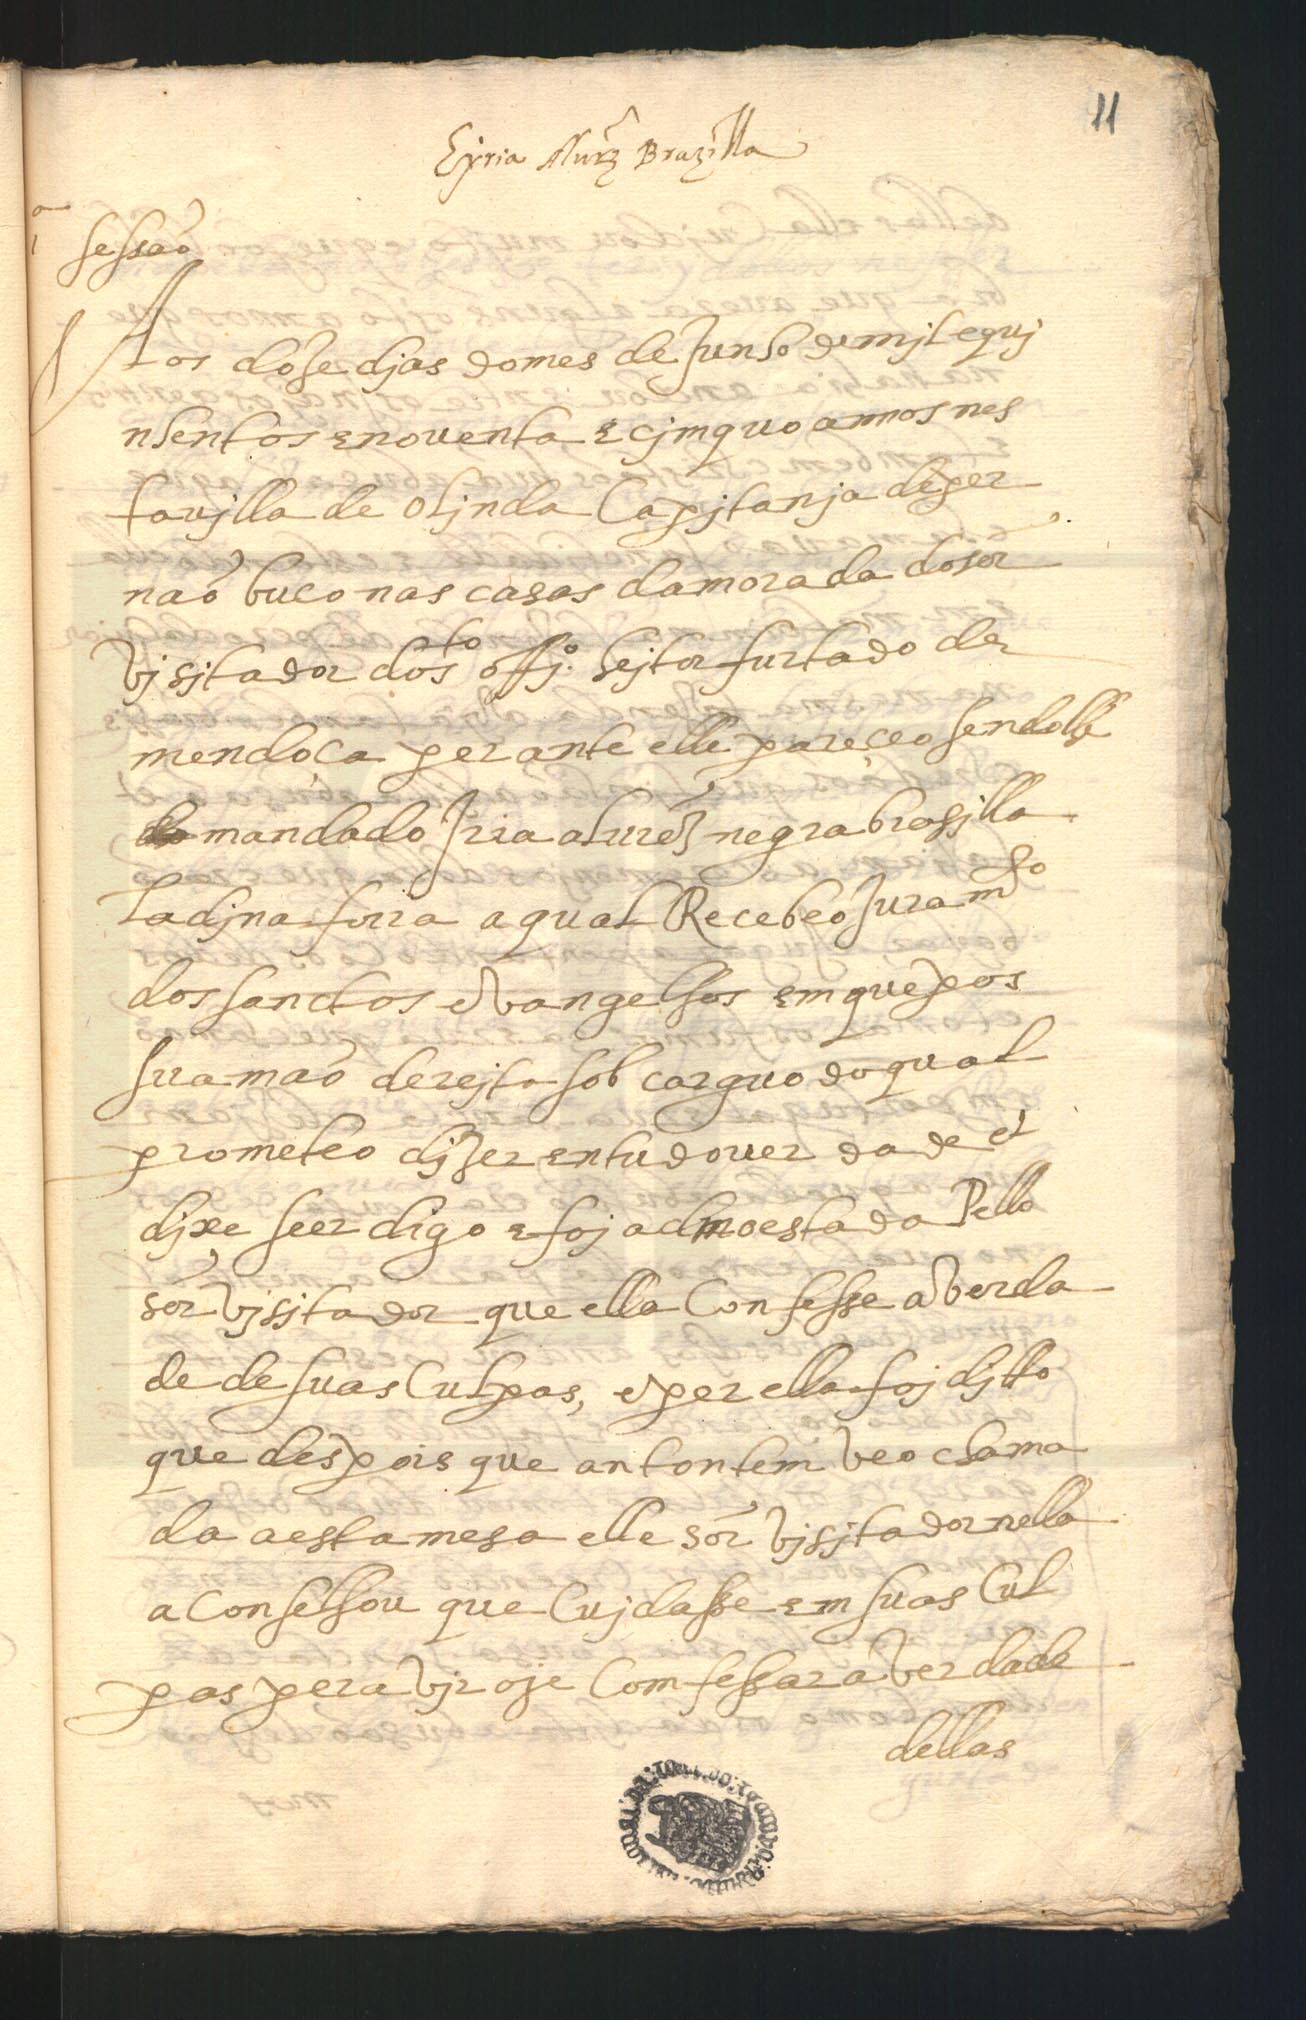 11
Eyria Alurz Brazilla
1ª sessaõ
Aos doze djas do mes de Junho de mjl e quj
nhentos e noventa e cjmquo annos nes
ta vjlla de oljnda Capjtanja de per
naõ buco nas casas da morada do sor
vjsjtador do sto offjº hejtor furtado de
mendoca perante elle pareçeo sendolhe
mandado Jria alurez negra brasjlla
ladjna forra a qual Recebeo Juramto
dos sanctos evangelhos em que pos
sua maõ derejta sob carguo do qual
prometeo djzer em tudo verdade et
djxe seer digo e foj admoestada Pello
sor vjsjtador que ella Confesse a verda
de de suas Culpas, e per ella foj djtto
que despois que antontem veo chama
da a esta mesa elle sor vjsjtador nella
a conselhou que Cujdasse em suas Cul
pas pera vjr oje Comfessar a verdade
dellas